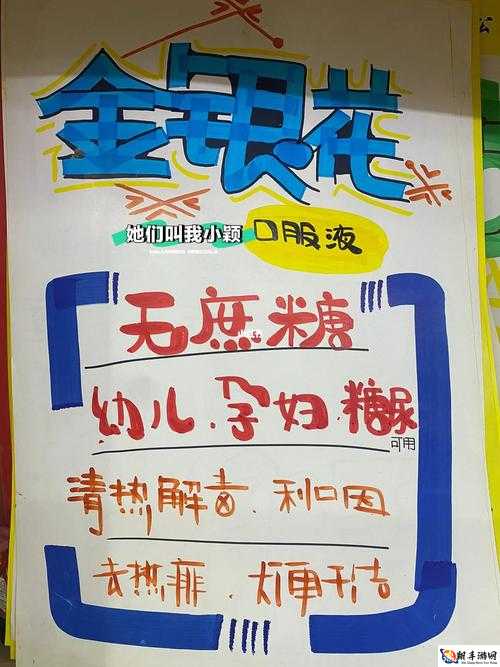 金银花
她们叫我小颖
口服液
无蔗糖
幼儿.孕妇.糖尿
可用
清热解毒.利口因
去热痱.大便干结
解手游网